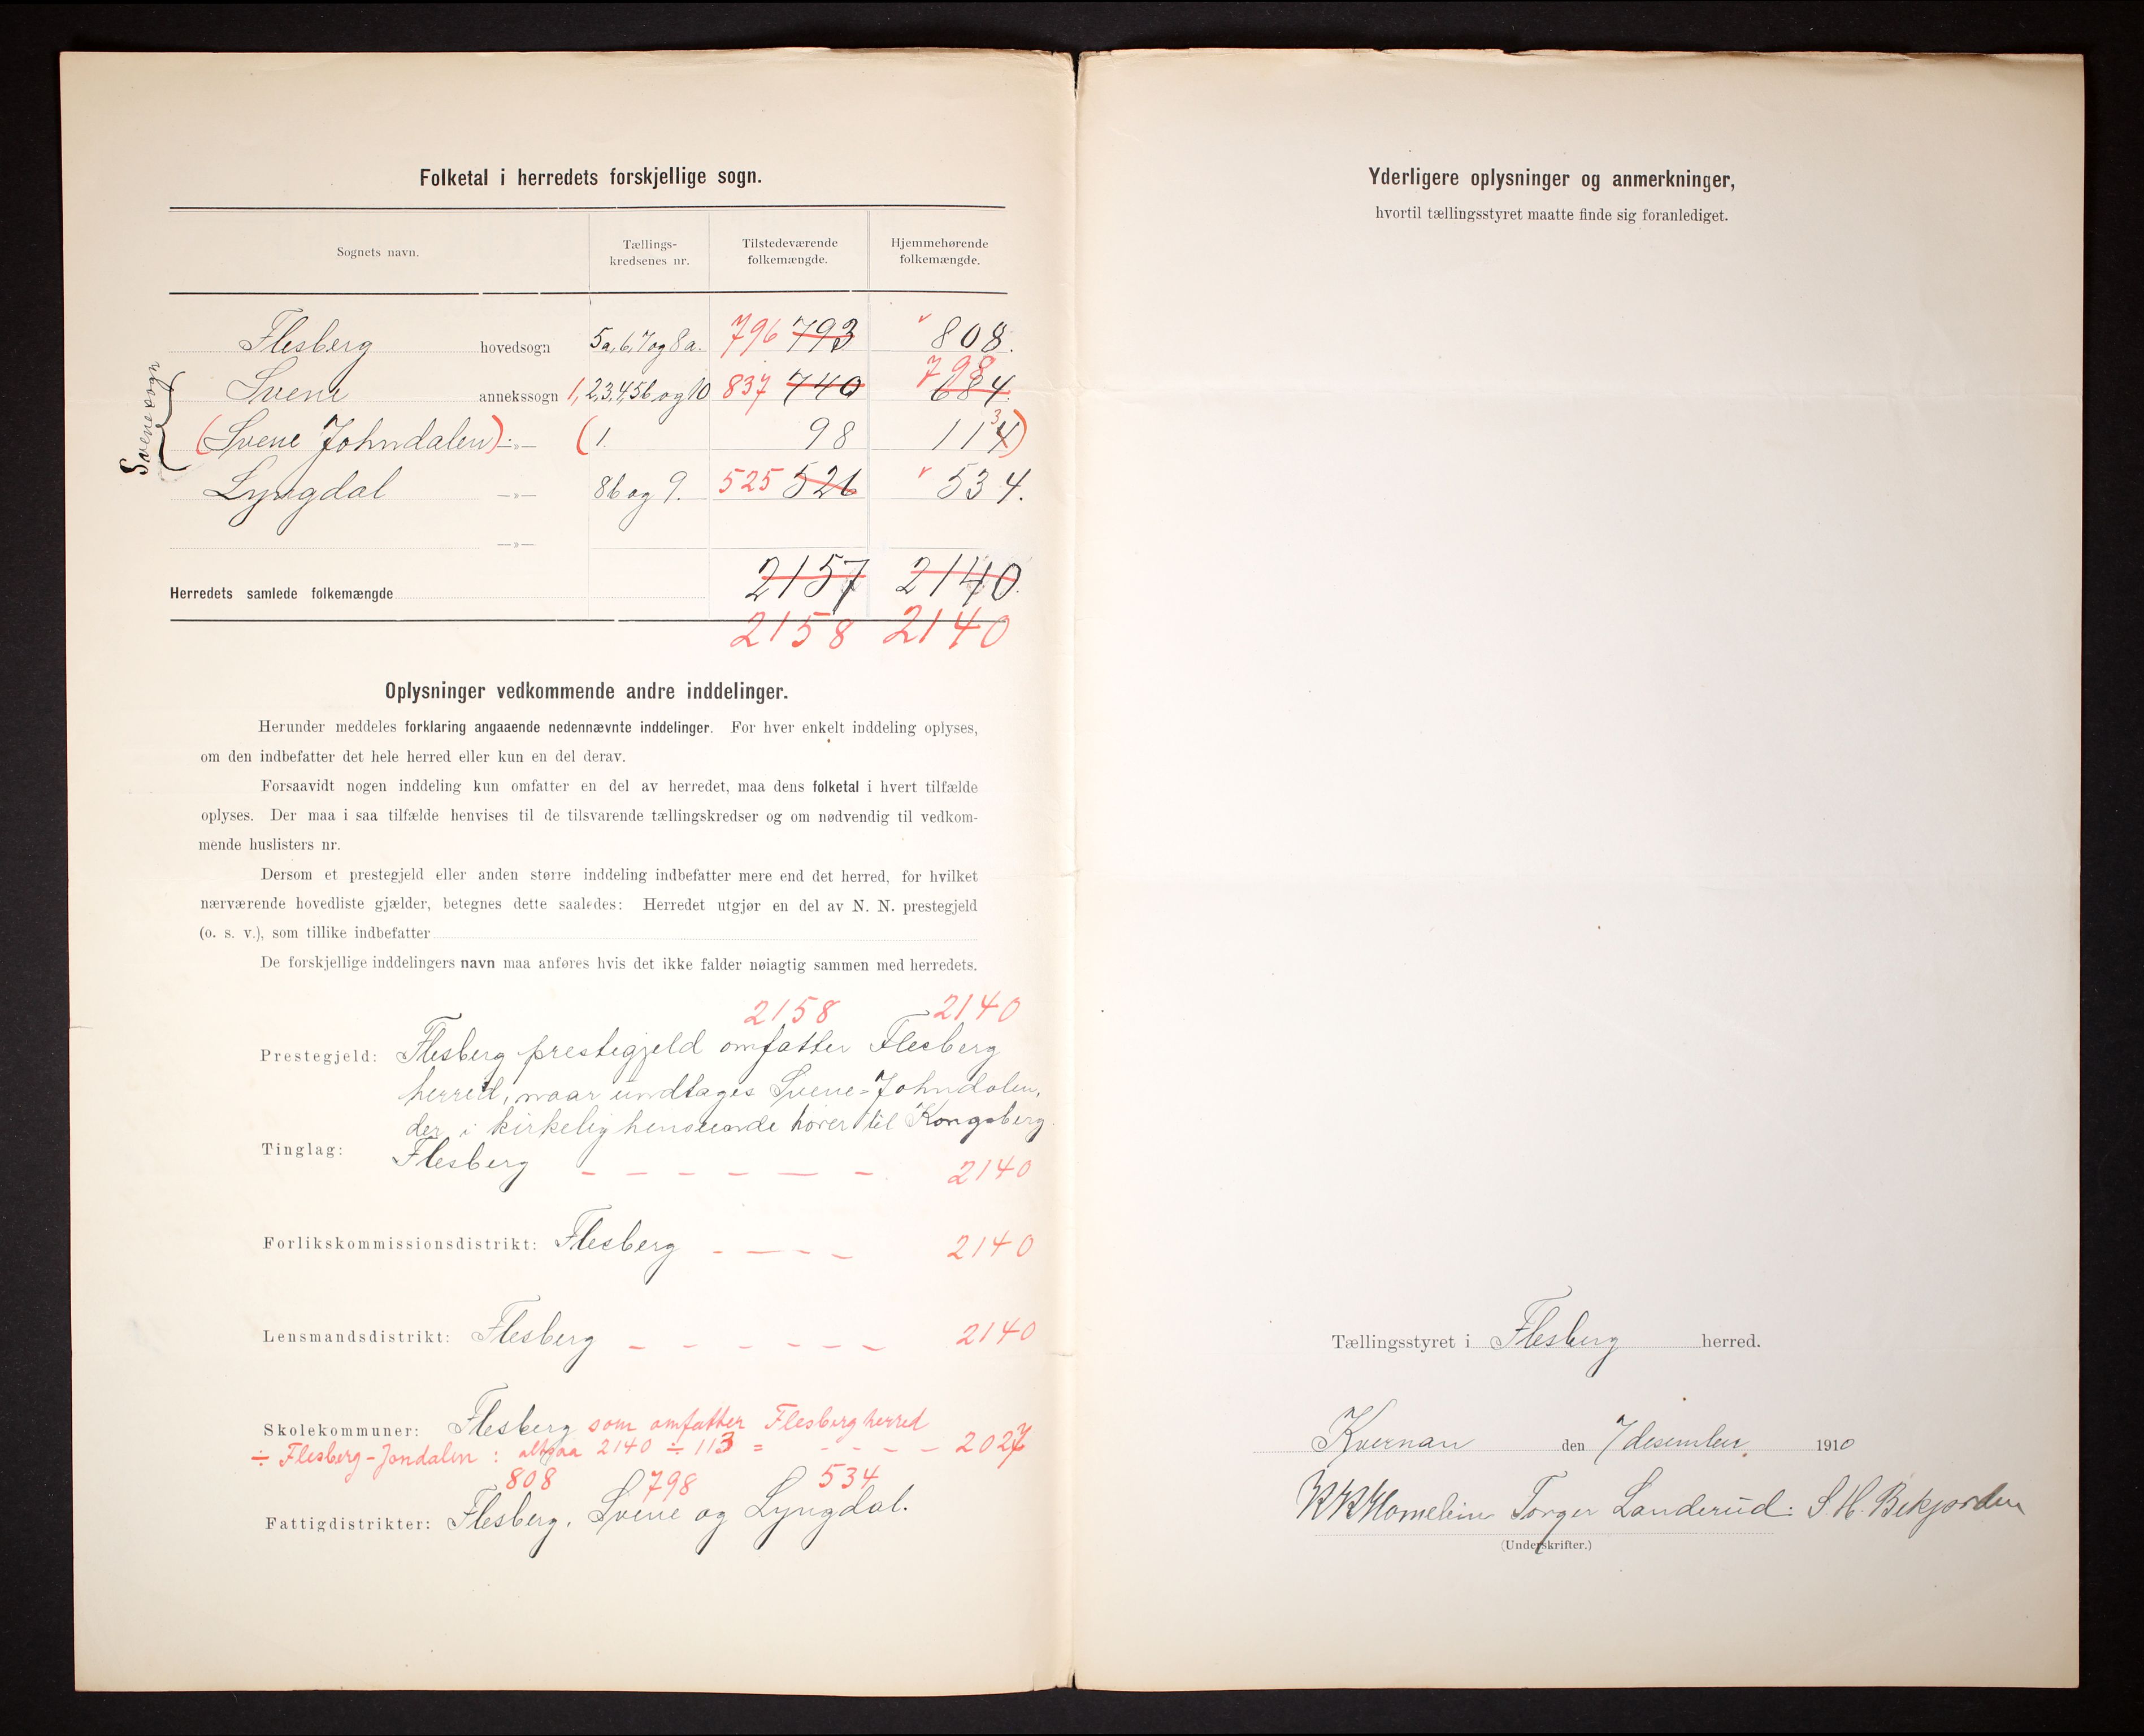 Folketal i herredets forskjellige sogn.
Sognets navn.
Tællings-
kredsenes nr.
Tilstedeværende
folkemængde.
Hjemmehørende
folkemængde.
Flesberg hovedsogn 5a, 6, 7 og 8a. 796 793 808.
Svenesogn
Svene annekssogn 1, 2, 3, 4, 5b og 10 837 740 798 684.
(Svene Johndalen) —„— (1. 98 114 3)
Lyngdal —„— 8b og 9. 525 526 534.
—„—
Herredets samlede folkemængde 2157 2140.
2158 2140
Oplysninger vedkommende andre inddelinger.
Herunder meddeles forklaring angaaende nedennævnte inddelinger. For hver enkelt inddeling oplyses,
om den indbefatter det hele herred eller kun en del derav.
Forsaavidt nogen inddeling kun omfatter en del av herredet, maa dens folketal i hvert tilfælde
oplyses. Der maa i saa tilfælde henvises til de tilsvarende tællingskredser og om nødvendig til vedkom-
mende huslisters nr.
Dersom et prestegjeld eller anden større inddeling indbefatter mere end det herred, for hvilket
nærværende hovedliste gjælder, betegnes dette saaledes: Herredet utgjør en del av N. N. prestegjeld
(o. s. v.), som tillike indbefatter
De forskjellige inddelingers navn maa anføres hvis det ikke falder nøiagtig sammen med herredets.
2158 2140
Prestegjeld: Flesberg prestegjeld omfatter Flesberg
herred, naar undtages Svene-Johndalen,
der i kirkelig henseende hører til Kongsberg.
Tinglag: Flesberg - - - - - - 2140
Forlikskommissionsdistrikt: Flesberg - - - - 2140
Lensmandsdistrikt: Flesberg - - - - - - 2140
Skolekommuner: Flesberg som omfatter Flesberg herred
÷ Flesberg-Jondalen : altsaa 2140 ÷ 113 = - - - - 2027
808 798 534
Fattigdistrikter: Flesberg, Svene og Lyngdal.
Yderligere oplysninger og anmerkninger,
hvortil tællingsstyret maatte finde sig foranlediget.
Tællingsstyret i Flesberg herred.
Kvernan den 7 desember. 1910
Torger Landerud. S. H. Bekjorden
(Underskrifter.)